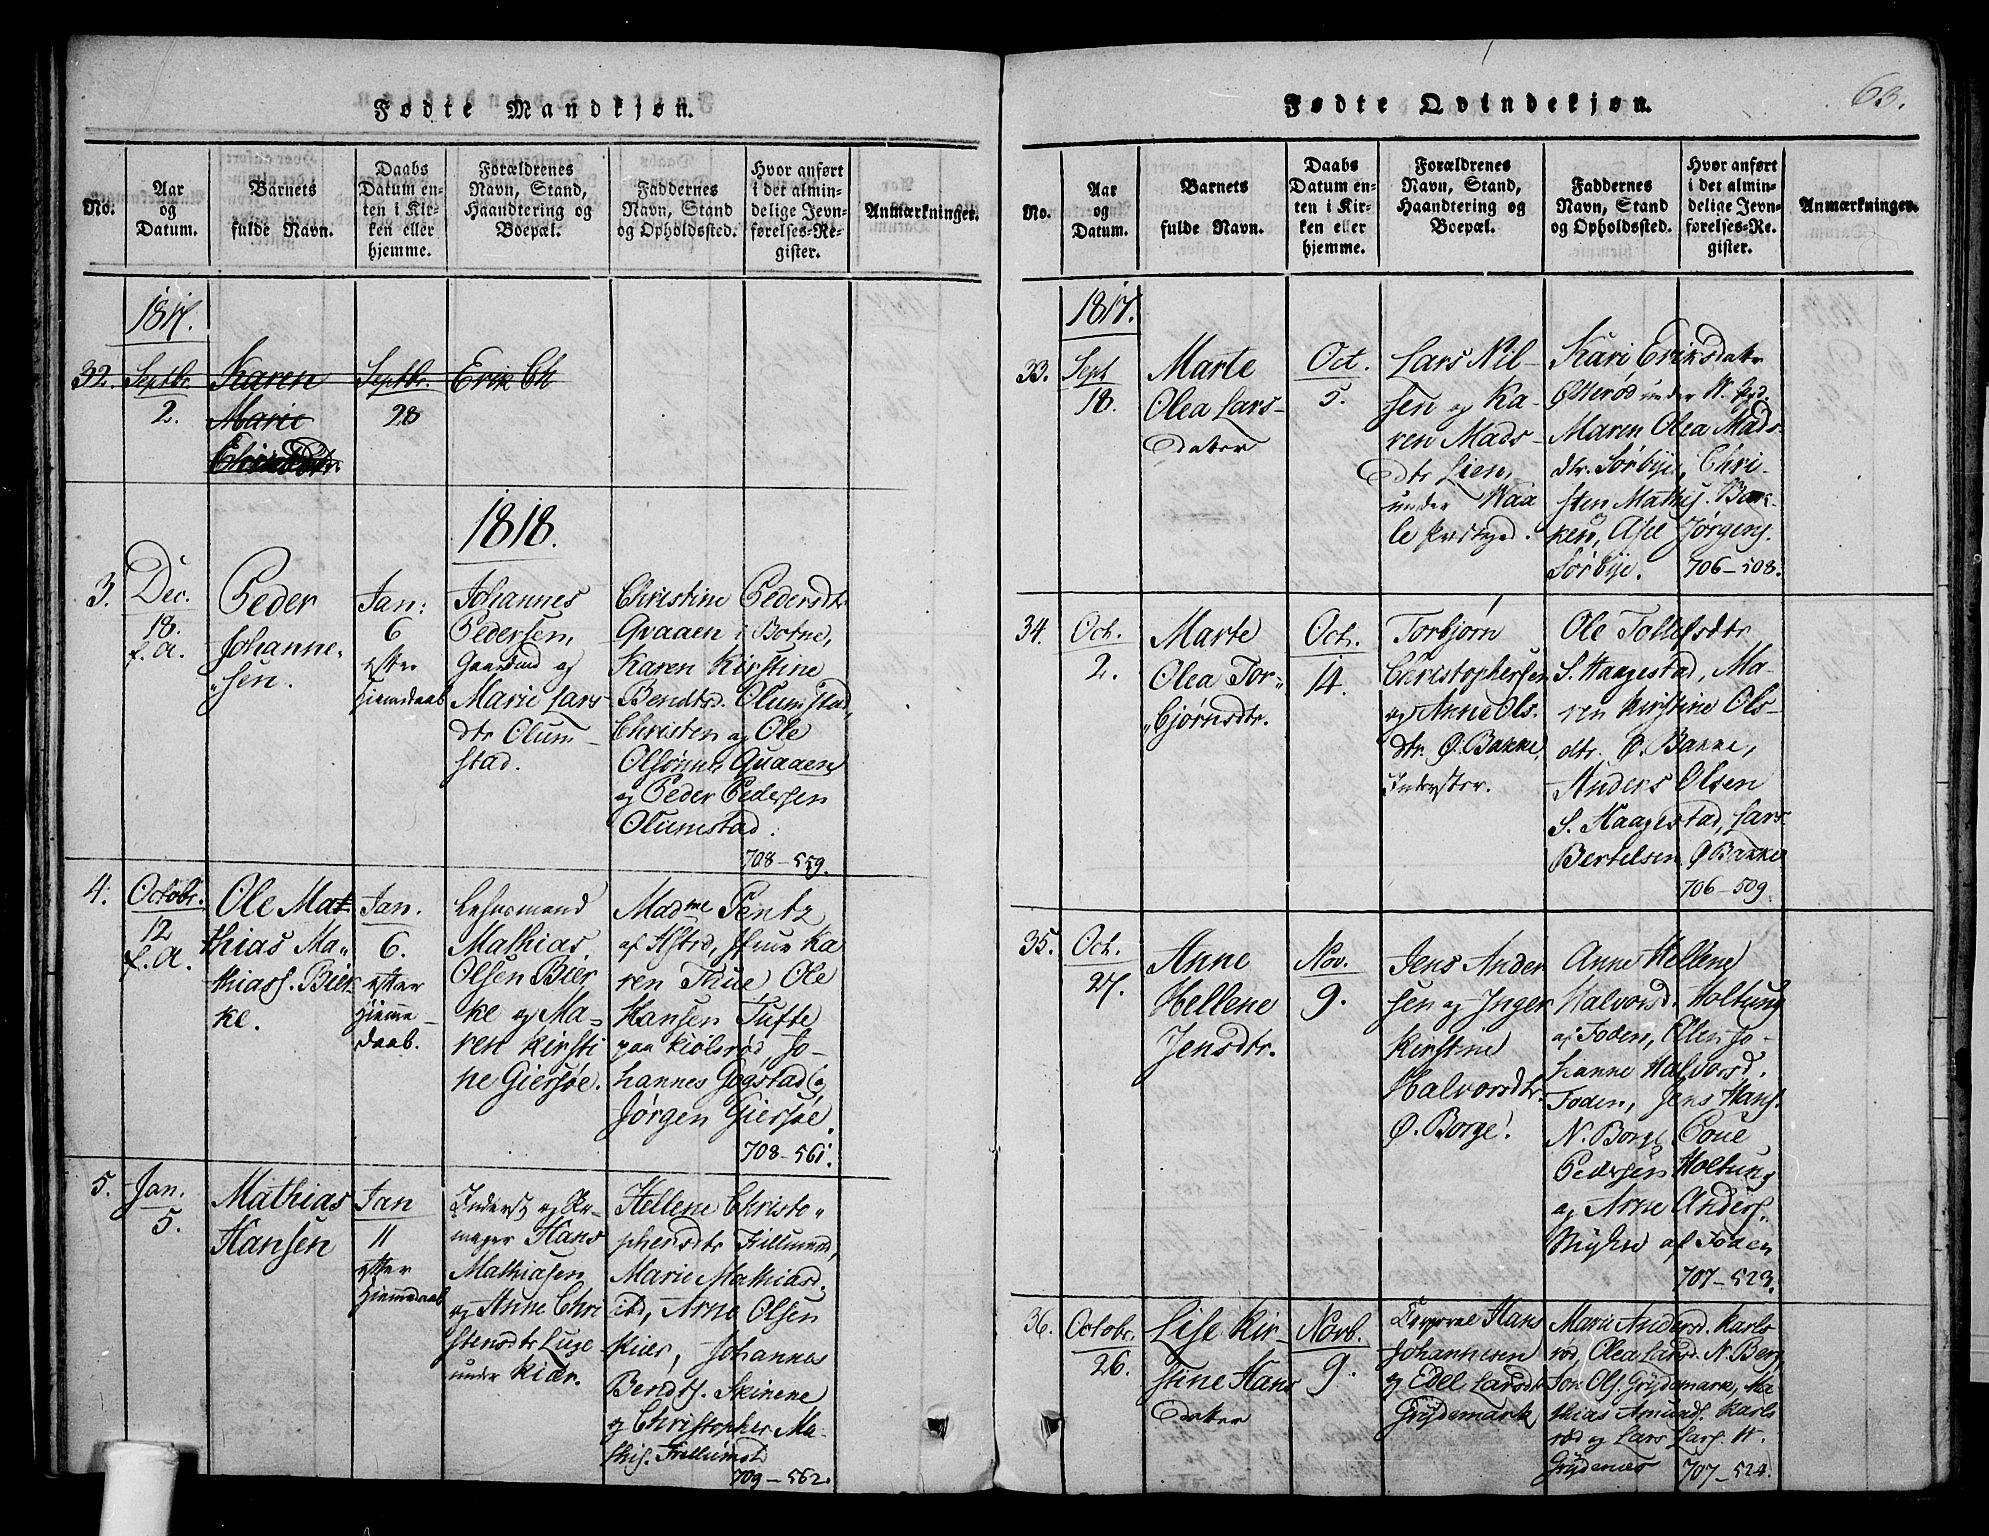 Fødte Mandkjøn.
No.
Aar
og
Datum.
Barnets
fulde Navn.
Daabs
Datum en-
ten i Kir-
ken eller
hjemme.
Forældrenes
Navn, Stand,
Haandtering og
Boepæl.
Faddernes
Navn, Stand
og Opholdssted.
Hvor anført
i det almin-
delige Jevn-
førelses-Re-
gister.
Anmærkninger.
1817.
32.
Septbr.
2.
Karen
Marie
Septbr.
28
Erik Ch
1818.
3.
Dec.
18.
f. A.
Peder
Johanne-
sen.
Jan:
6
efter
Hjemdaab
Johannes
Pedersen,
Gaardmd og
Marie Lars
dtr Olum-
stad.
Christine Pedersdtr
Qvaaen i Botne,
Karen Kirstine
Bendtsd. Olumstad,
Christen og Ole
Olsønner Qvaaen
og Peder Pedersen
Olumstad.
708-559.
4.
Octobr.
12
f. A.
Ole Mat
thias Ma-
thiass. Bier
ke.
Jan.
6.
efter
hjemme-
daab.
Lehnsmand
Mathias
Olsen Bier
ke og Ma-
ren Kirsti
ne Giersøe.
Madme Pentz
Karen Thue Ole
Hansen Tufte
paa Kiølsrød Jo-
hannes Gogstad og
Jørgen Giersøe.
708-561.
5.
Jan.
5.
Mathias
Hansen
Jan
11
efter
Hiemedaab
Inderst og Sko-
mager Hans
Mathiasen
og Anne Chri
stensdtr Luge
under Kiær.
Hellene Christo-
phersdtr Fillumsd,
Marie Mathiasd.
ibd, Arne Olsen
Kiær, Johannes
Berdts. Skinene
og Christopher Ma-
this. Fillumst
709-562.
Fødte Qvindekjøn.
63.
No.
Aar
og
Datum.
Barnets
fulde Navn.
Daabs
Datum en-
ten i Kir-
ken eller
hjemme.
Forældrenes
Navn, Stand,
Haandtering og
Boepæl.
Faddernes
Navn, Stand
og Opholdssted.
Hvor anført
i det almin-
delige Jevn-
førelses-Re-
gister.
Anmærkninger.
1817.
33.
Sept
18.
Marte
Olea Lars-
dater
Oct.
5.
Lars Nil-
sen og Ka-
ren Mads-
dtr Lien,
under Waa
le Prstgrd.
Kari Eriksdatr
Østerød under W. Prgd.
Maren Olea Mads
dtr. Sørbye, Chri-
sten Mathis. Bak-
ken, Ase Jørgens.
Sørbye.
706-508.
34.
Oct.
2.
Marte
Olea Tor-
biørnsdtr.
Oct.
14.
Torbjørn
Christophersen
og Anne Ols
dtr. Ø. Bakke
Inderster.
Ole Tollefsdtr
S. Haagestad, Ma-
ren Kirstine Ols-
dtr. Ø. Bakke,
Anders Olsen
S. Haagestad, Lars
Bertelsen Ø Bakke
706-509.
35.
Oct.
27.
Anne
Hellene
Jensdtr.
Nov.
9.
Jens Ander
sen og Inger
Kirstine
Halvorsdtr.
Ø. Borge.
Anne Hellene
Halvorsd. Holtung
af Foden, Ellen Jo-
hanne Halvorsd.
Foden, Jens Hans.
N. Borge
Pedersen Holtung
og Arne Anders.
af Foden
707-523.
36.
Octobr.
26.
Lise Kir-
stine Hans
dater
Novb.
9.
Corporal Hans
Johannesen
og Edel Larsdtr
Grydemark
Marie Andersd. Karls
rød, Olea Larsd. N. Berg,
Jon Ols. Grydemark, Ma-
thias Amunds. Karls
rød og Lars Lars.
707-524.